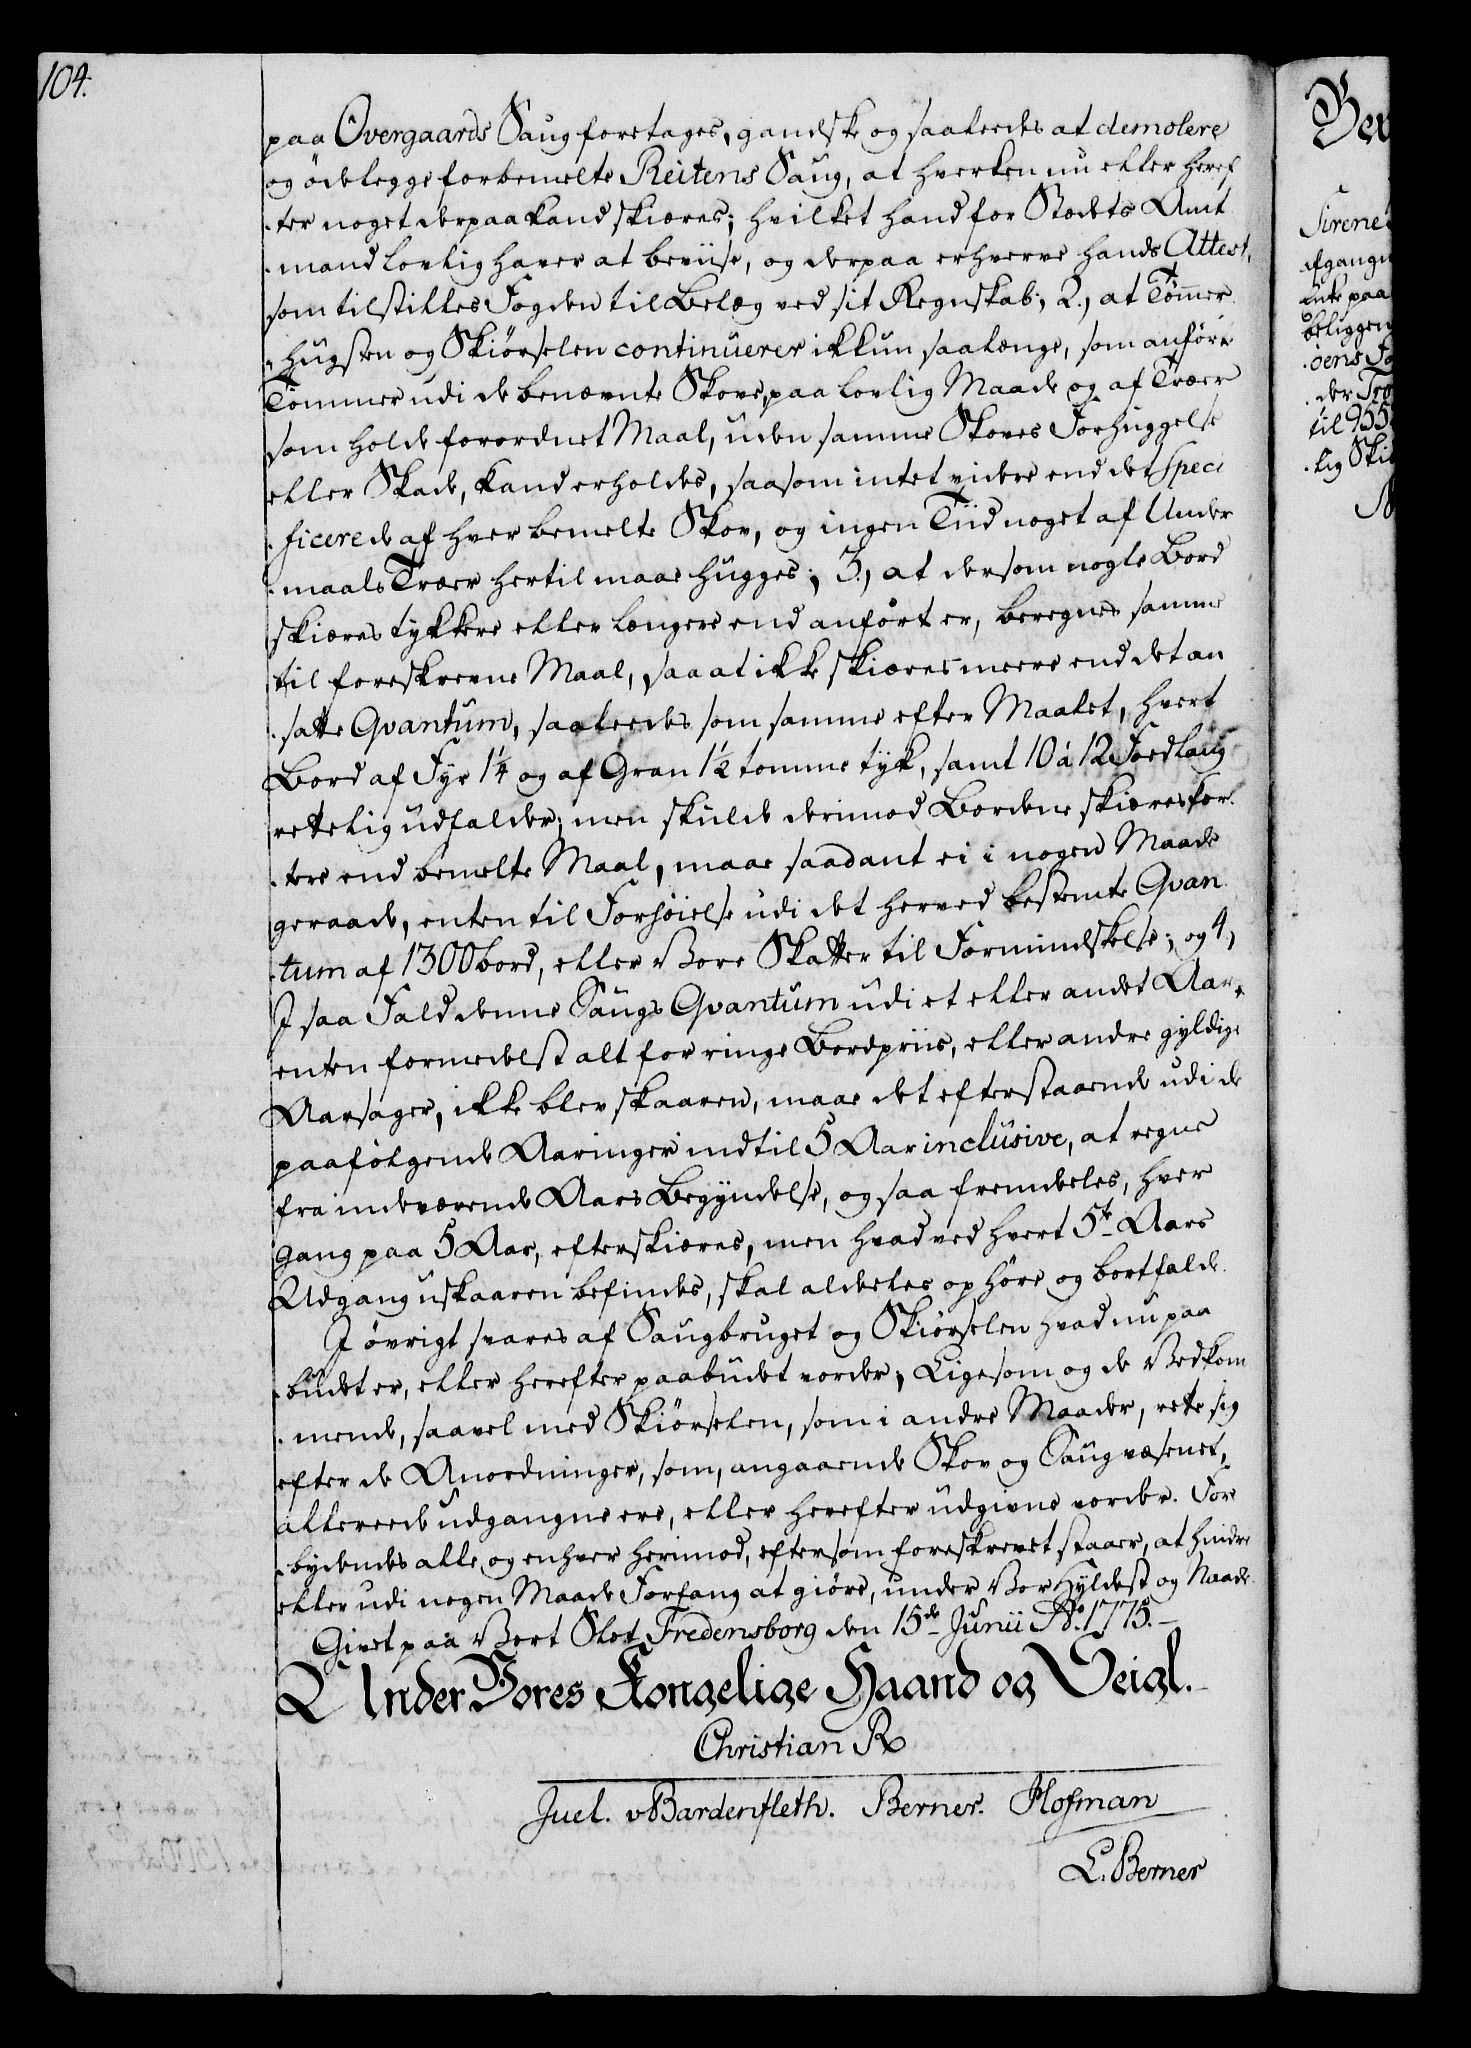 104.
paa Overgaards Saug foretages, gandske og saaleedes at demolere
og ödelegge forbemelte Reitens Saug, at hverken nu eller heref
ter noget derpaa kand skiæres; hvilket hand for Stædets Amt
mand lovlig haver at beviise, og derpaa erhverve hands Attest,
som tilstilles Fogden til Belæg ved sit Regnskab; 2., at Tömmer
hugsten og Skiørselen continuerer ikkun saalænge, som anførte
Tömmer udi de benævnte Skove, paa lovlig Maade og af Træer
som holde forordnet Maal, uden samme Skoves Forhuggelse
eller Skade, kand erholdes, saasom intet videre end det speci
ficerede af hver bemelte Skov, og ingen Tiid noget af Under
maals Træer hertil maae hugges; 3., at dersom nogle Bord
skiæres tykkere eller længere end anført er, beregnes samme
til foreskrevne Maal, saa at ikke skiæres meere end det an
satte Qvantum, saaleedes som samme efter Maalet, hvert
Bord af Fyr 1 1/4 og af Gran 1 1/2 tomme tyk, samt 10 á 12 Foed lang
rettelig udfalder; men skulde derimod Bordene skiæres kor
tere end bemelte Maal, maae saadant ei i nogen Maade
geraade, enten til Forhöielse udi det herved bestemte Qvan
tum af 1300 bord, eller Vore Skatter til Formindskelse; og 4.,
I saa Fald denne Saugs Qvantum udi et eller andet Aar,
enten formedelst alt for ringe Bordpriis, eller andre gyldige
Aarsager, ikke blev skaaren, maae det efterstaaende udi de
paafølgende Aaringer indtil 5 Aar inclusive, at regne
fra indeværende Aars Begyndelse, og saa fremdeeles, hver
gang paa 5 Aar, efterskiæres, men hvad ved hvert 5te Aars
Udgang uskaaren befindes, skal aldeeles ophøre og bortfalde.
I øvrigt svares af Saugbruget og Skiørselen hvad nu paa
budet er, eller herefter paabudet vorder; Ligesom og de Vedkom
mende, saavel med Skiørselen, som i andre Maader, rette sig
efter de Anordninger, som, angaaende Skov og Saugvæsenet,
allereede udgangne ere, eller herefter udgivne vorder. For
bydendes alle og enhver herimod, eftersom foreskrevet staaer, at hindre
eller udi nogen Maade Forfang at giøre, under Vor Hyldest og Naade.
Givet paa Vort Slot Fredensborg den 15de Junii Ao. 1775.
Under Vores Kongelige Haand og Seigl.
Christian R
Juel. vBardenfleth. Berner. Hofman
L. Berner